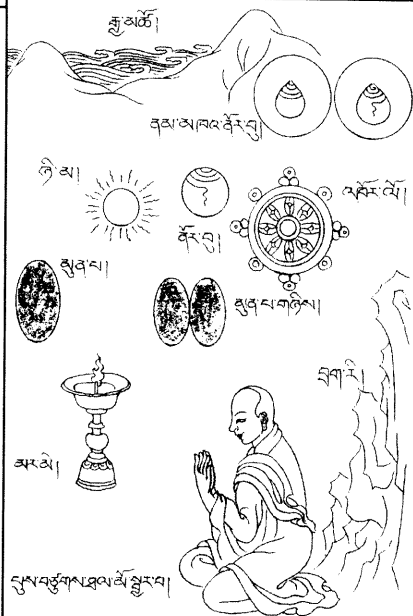 རྒྱ་མཚོ།
ནམ་མཁའ་ནོར་བུ།
ཉི་མ།
ནོར་བུ།
འཁོར་ལོ།
མུན་པ།
མུན་པ་གཉིས།
བྲག་རི།
མར་མེ།
པུས་བཙུགས་ཐལ་མོ་སྦྱར་བ།